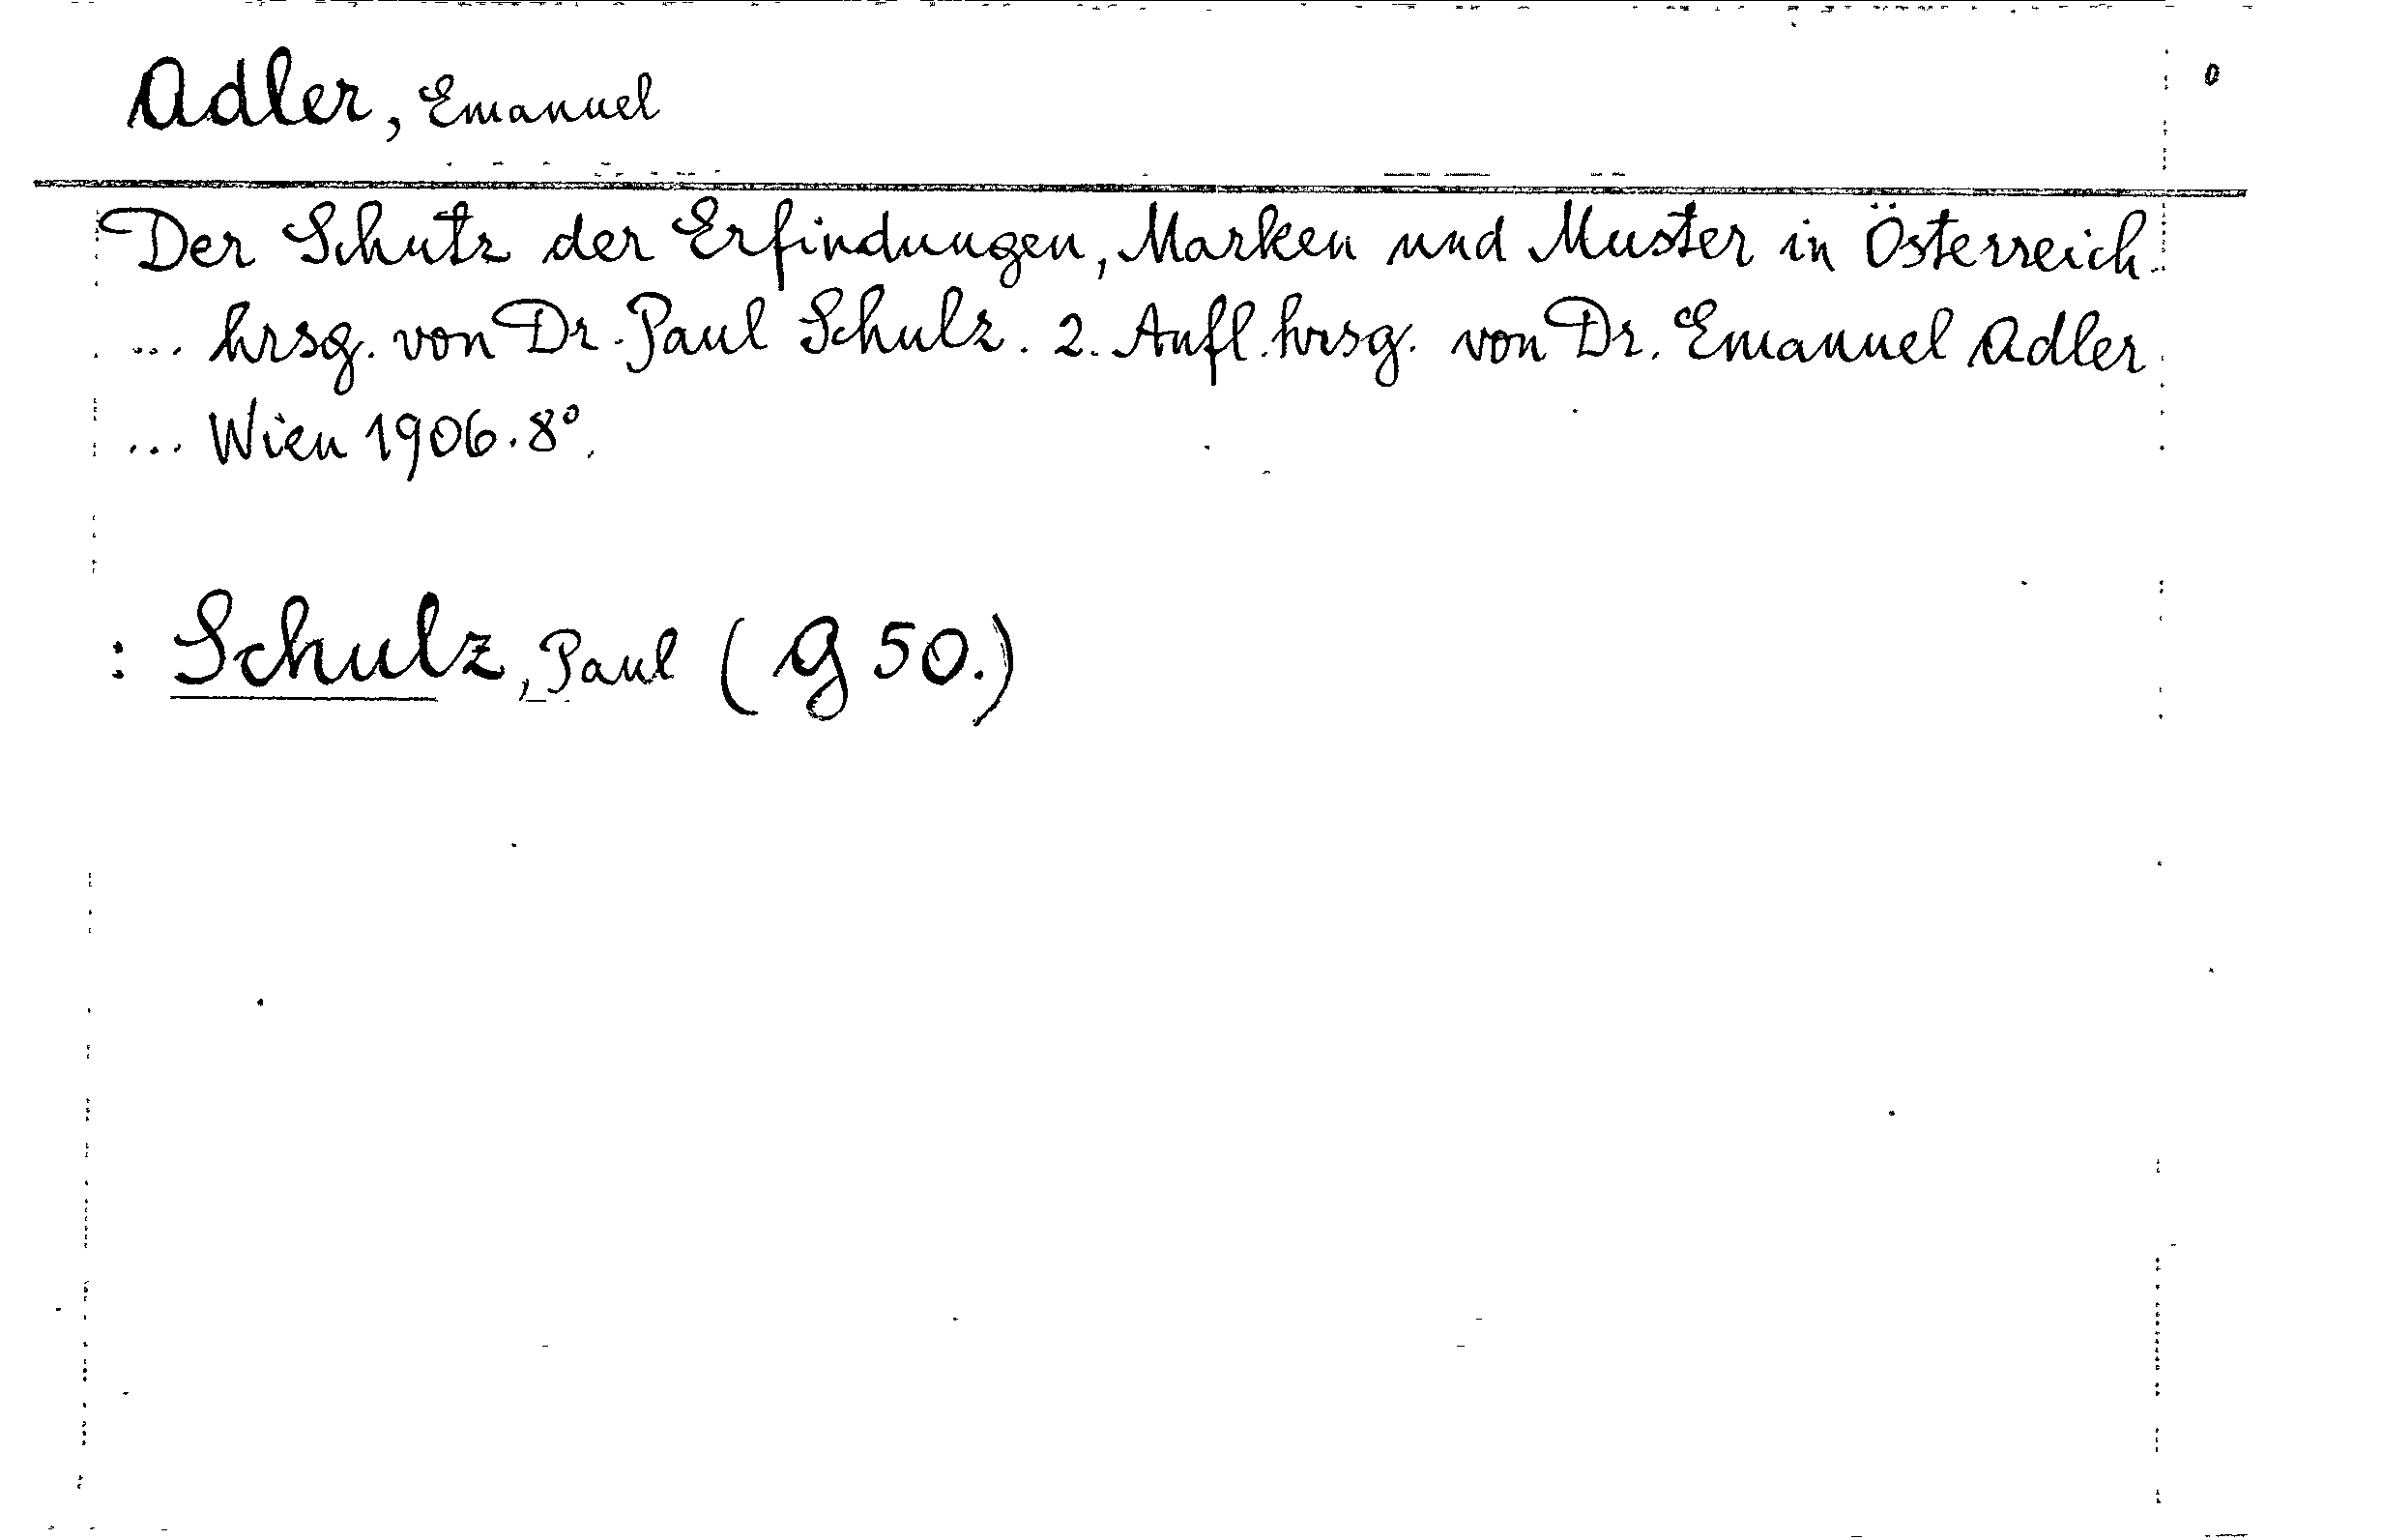 Adler, Emanuel
Der Schutz der Erfindungen, Marken und Muster in Österreich
... hrsg. von Dr. Paul Schulz. 2. Aufl. hrsg. von Dr. Emanuel Adler
... Wien 1906. 8°.
: Schulz, Paul (G 50.)